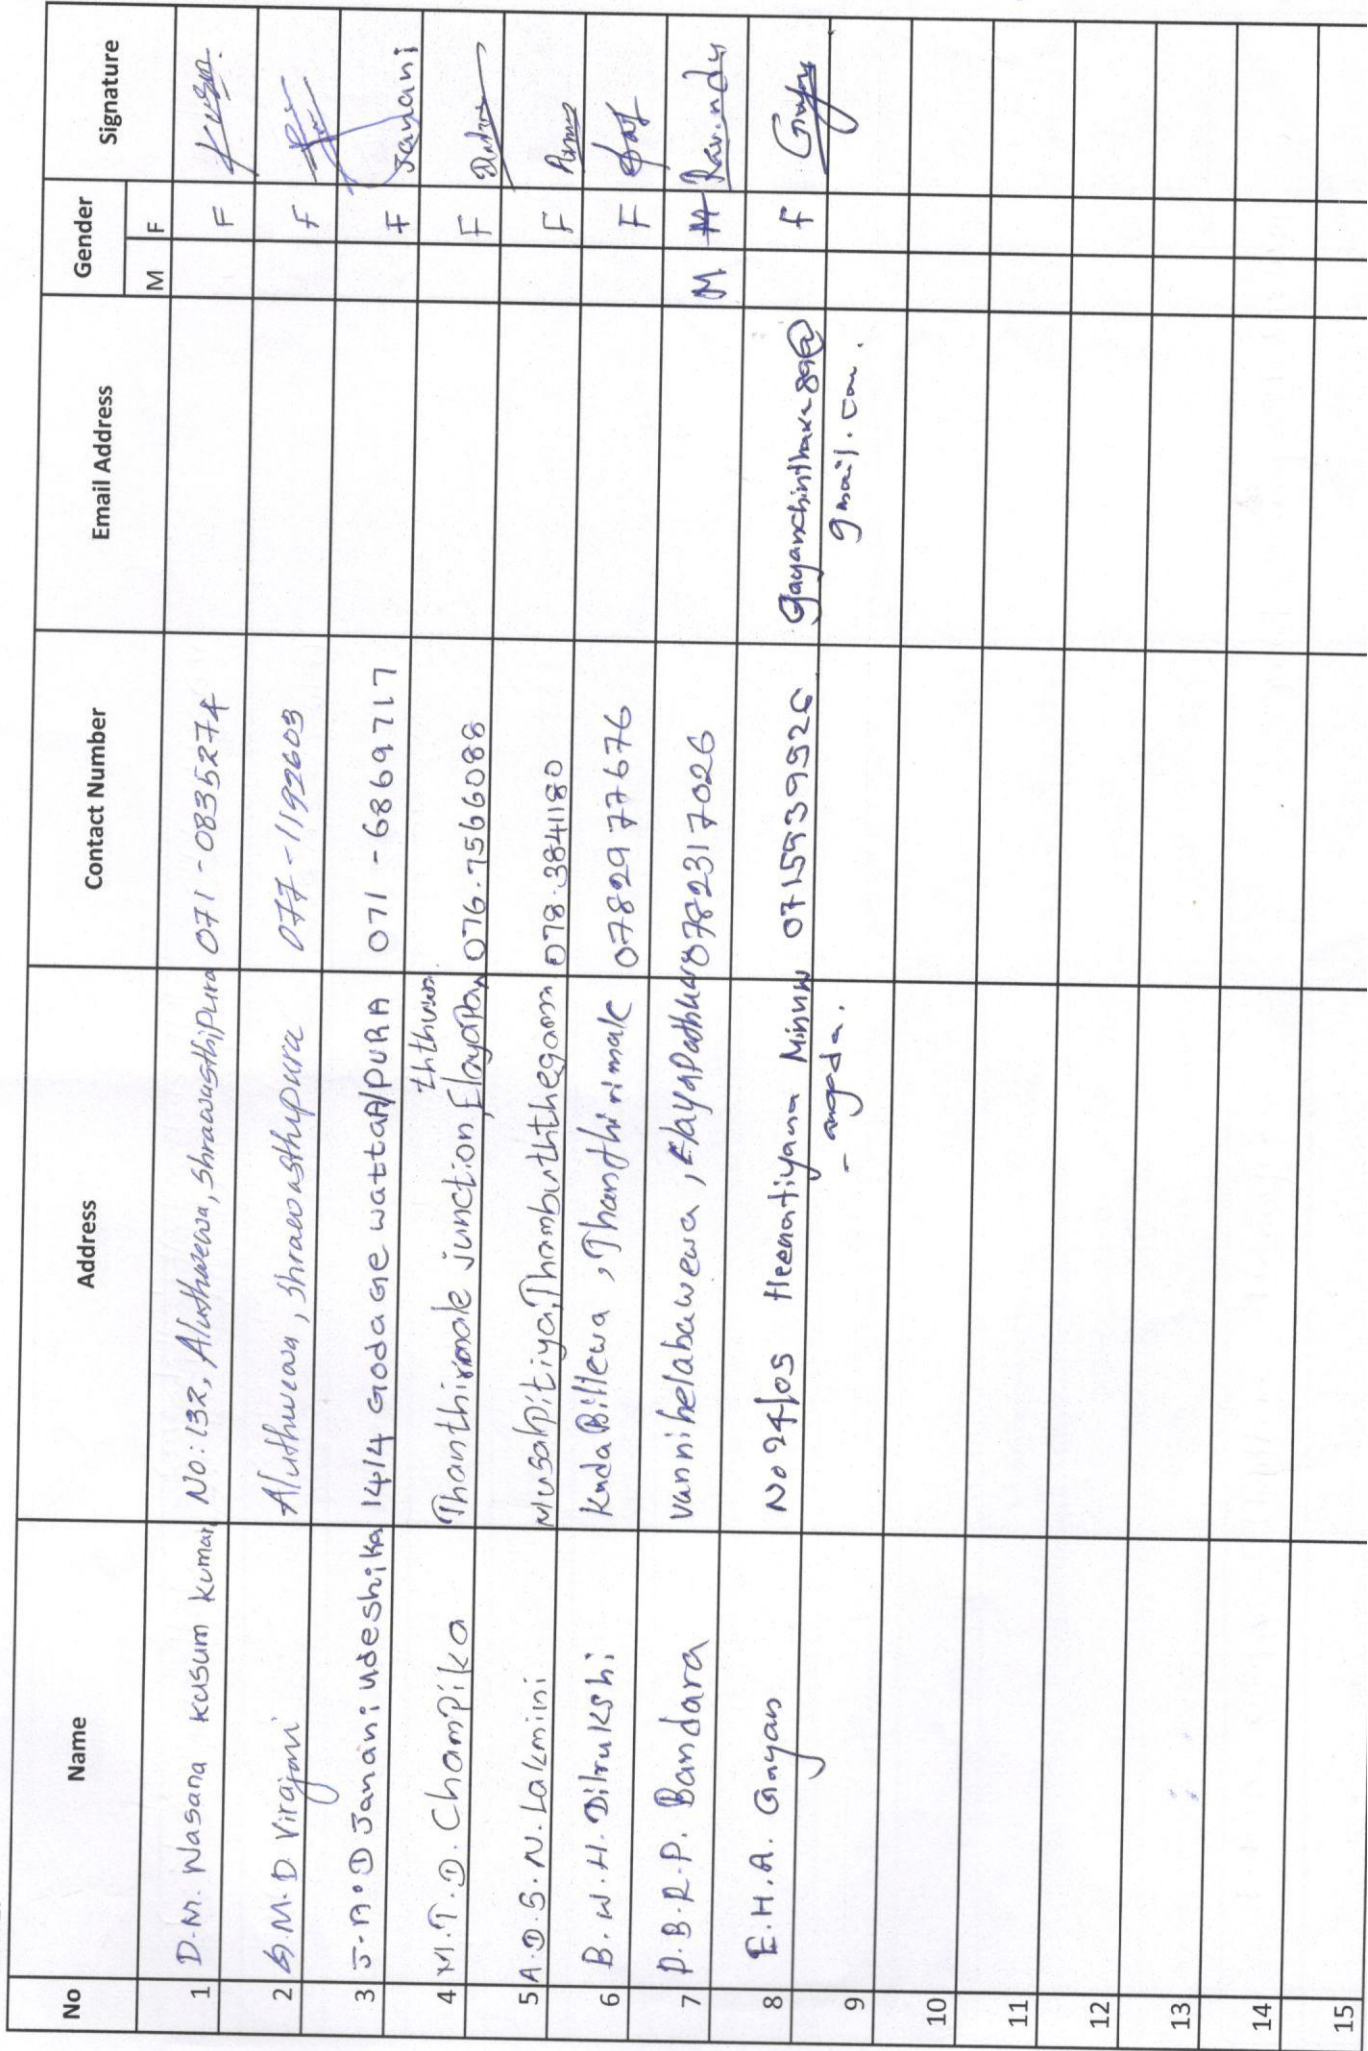 No Name Address Contact Number Email Address Gender Signature
M F
1 D.M. Wasana kusum kumari No: 132, Aluthwewa, Shrawasthipura 071 - 0835274 F
2 G.M.D. Virajani Aluthwewa, Shrawasthipura 077-1192603 F
3 J.A.D Janani udeshika 14/4 Godage watta A/PURA 071 - 6869717 F Janani
4 M.T.D. Champika Thanthirimale junction, 076.7566088 F
5 A.D.S.N. Lakmini Musalpitiya, Thambuththegama 078.3841180 F
6 B.W.H. Dilrukshi kuda Billewa, Thanthirimale 0782977676 F
7 D.B.R.P. Bandara Vannihelabawewa, 0782317026 M Ravindu
8 E.H.A. Gayan No 24/05 Heenatiyana Minuw 0715939926 gayanchinthaka89@ F
9 - angoda. gmail.com.
10
11
12
13
14
15